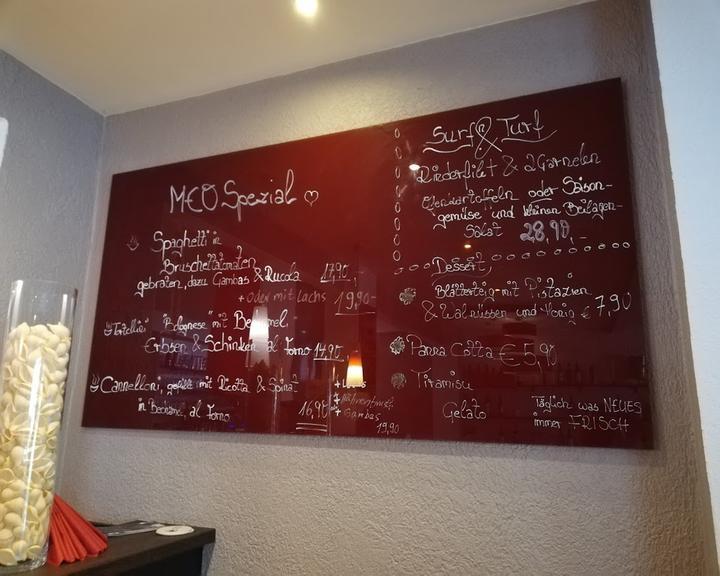 MEO Spezial
Spaghetti in
Bruschettatomaten
gebraten, dazu Gambas & Rucola 17,90
+ oder mit Lachs 19,90-
"Bolognese" mit Bechamel,
Erbsen & Schinken al forno 14,90
Cannelloni, gefüllt mit Ricotta & Spinat
in Bechamel, al forno 16,90
+ Lachs
+ Gambas
19,90
Surf & Turf
Rinderfilet & 2 Garnelen
Ofenkartoffeln oder Saison-
gemüse und kleinen Beilagen-
Salat 28,90,-
Dessert,
Blätterteig mit Pistazien
& Walnüssen und Honig € 7,90
Panna Cotta € 5,90
Tiramisu
Gelato
Täglich was NEUES
immer FRISCH